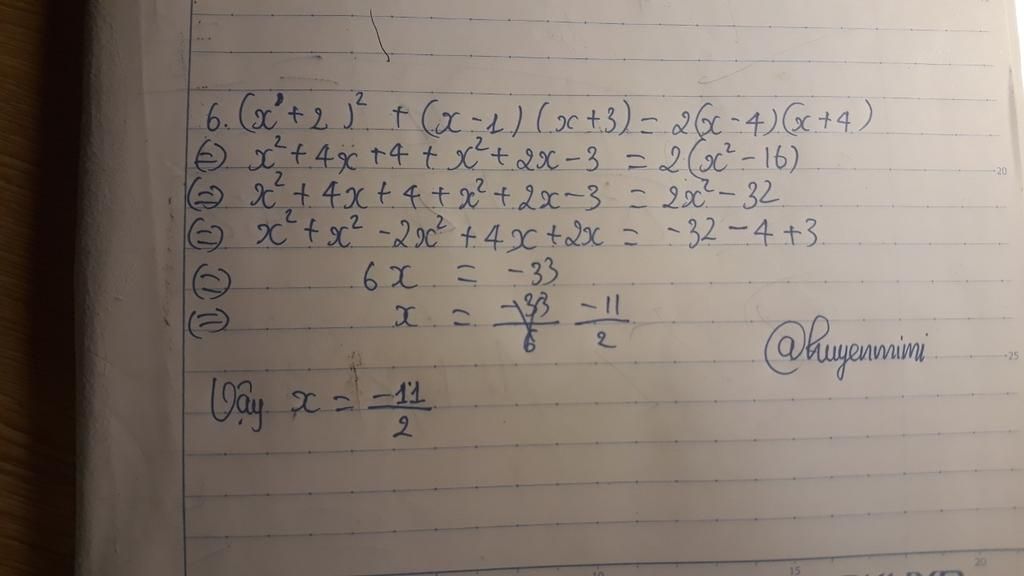 6. (x² + 2)² + (x - 1)(x + 3) = 2(x - 4)(x + 4)
(=) x² + 4x + 4 + x² + 2x - 3 = 2(x² - 16)
(=) x² + 4x + 4 + x² + 2x - 3 = 2x² - 32
(=) x² + x² - 2x² + 4x + 2x = -32 - 4 + 3
(=) 6x = -33
(=) x = -33/6 -11/2
@huyenmimi
Vậy x = -11/2
20
25
15
20